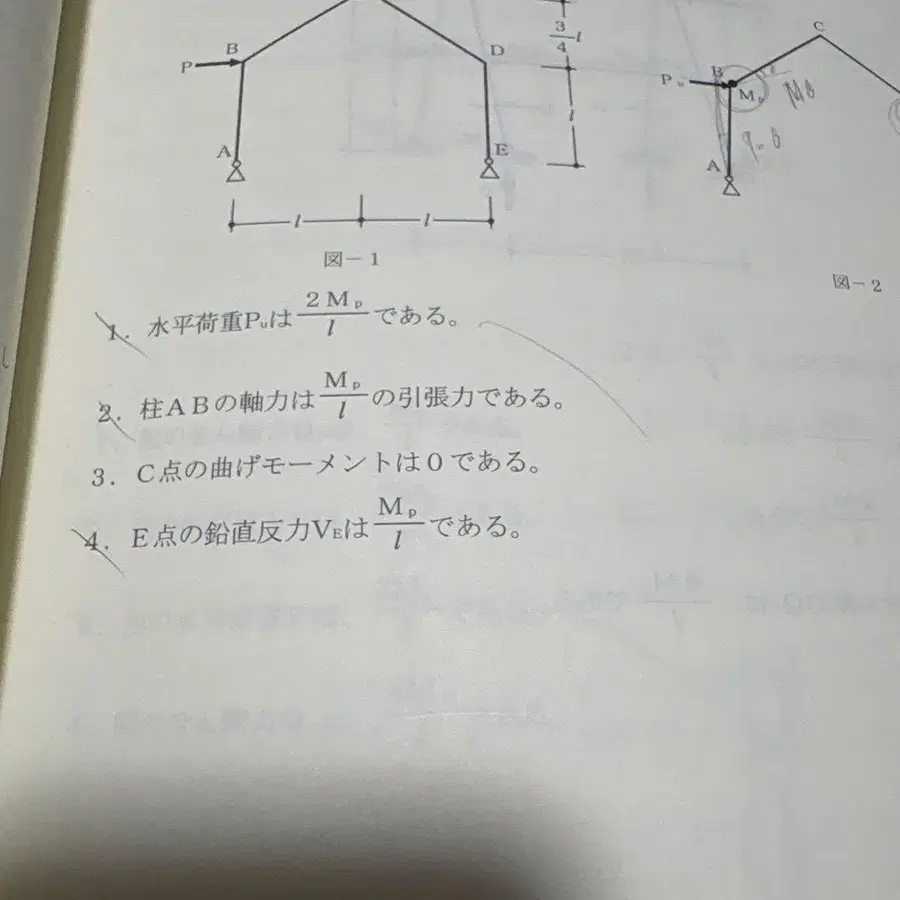 C
3/4 l
B
D
P
l
B
Pu
Mp
Mθ
A
E
A
θ
l
l
図－1
図－2
1. 水平荷重Puは 2Mp/l である。
2. 柱ABの軸力は Mp/l の引張力である。
3. C点の曲げモーメントは0である。
4. E点の鉛直反力VEは Mp/l である。